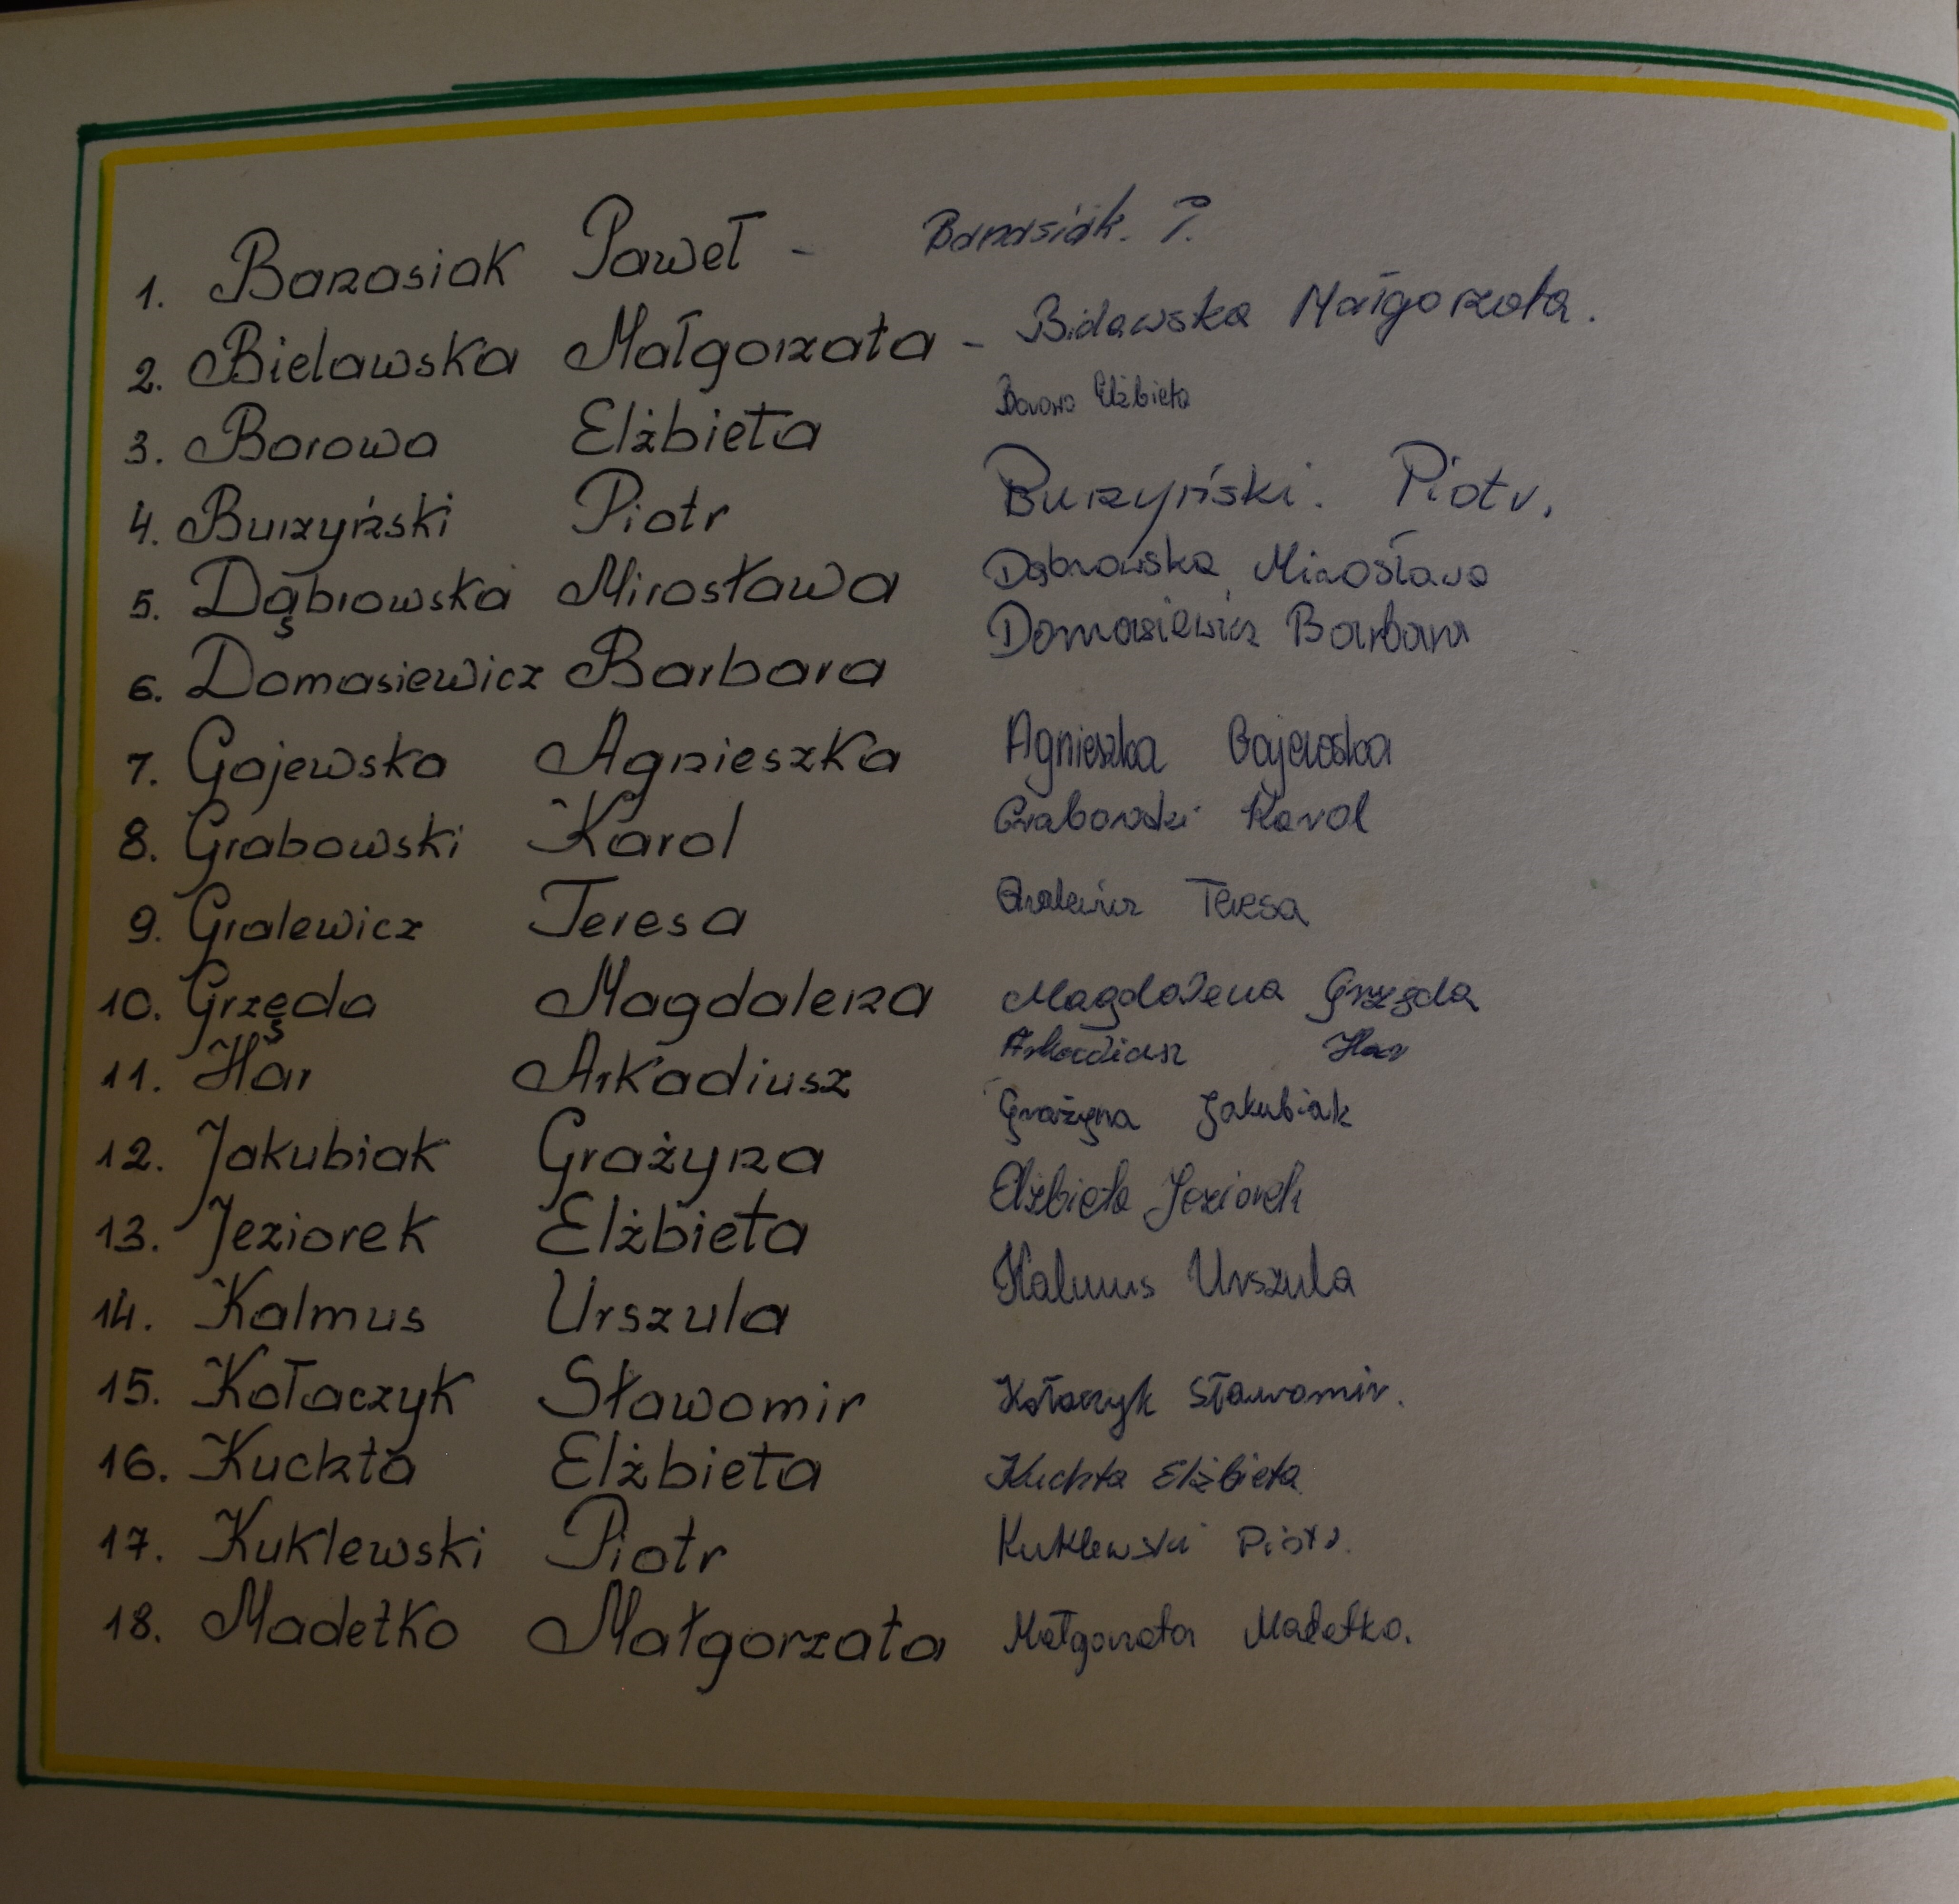 1. Banasiak Paweł - Banasiak. P.
2. Bielawska Małgorzata - Bielawska Małgorzata.
3. Borowa Elżbieta Borowa Elżbieta
4. Burzyński Piotr Burzyński. Piotr.
5. Dąbrowska Mirosława Dąbrowska Mirosława
6. Domasiewicz Barbara Domasiewicz Barbara
7. Gajewska Agnieszka Agnieszka Gajewska
8. Grabowski Karol Grabowski Karol
9. Gralewicz Teresa Gralewicz Teresa
10. Grzęda Magdalena Magdalena Grzęda
11. Har Arkadiusz Arkadiusz Har
12. Jakubiak Grażyna Grażyna Jakubiak
13. Jeziorek Elżbieta Elżbieta Jeziorek
14. Kalmus Urszula Kalmus Urszula
15. Kołaczyk Sławomir Kołaczyk Sławomir.
16. Kuchta Elżbieta Kuchta Elżbieta
17. Kuklewski Piotr Kuklewski Piotr.
18. Madetko Małgorzata Małgorzata Madetko.